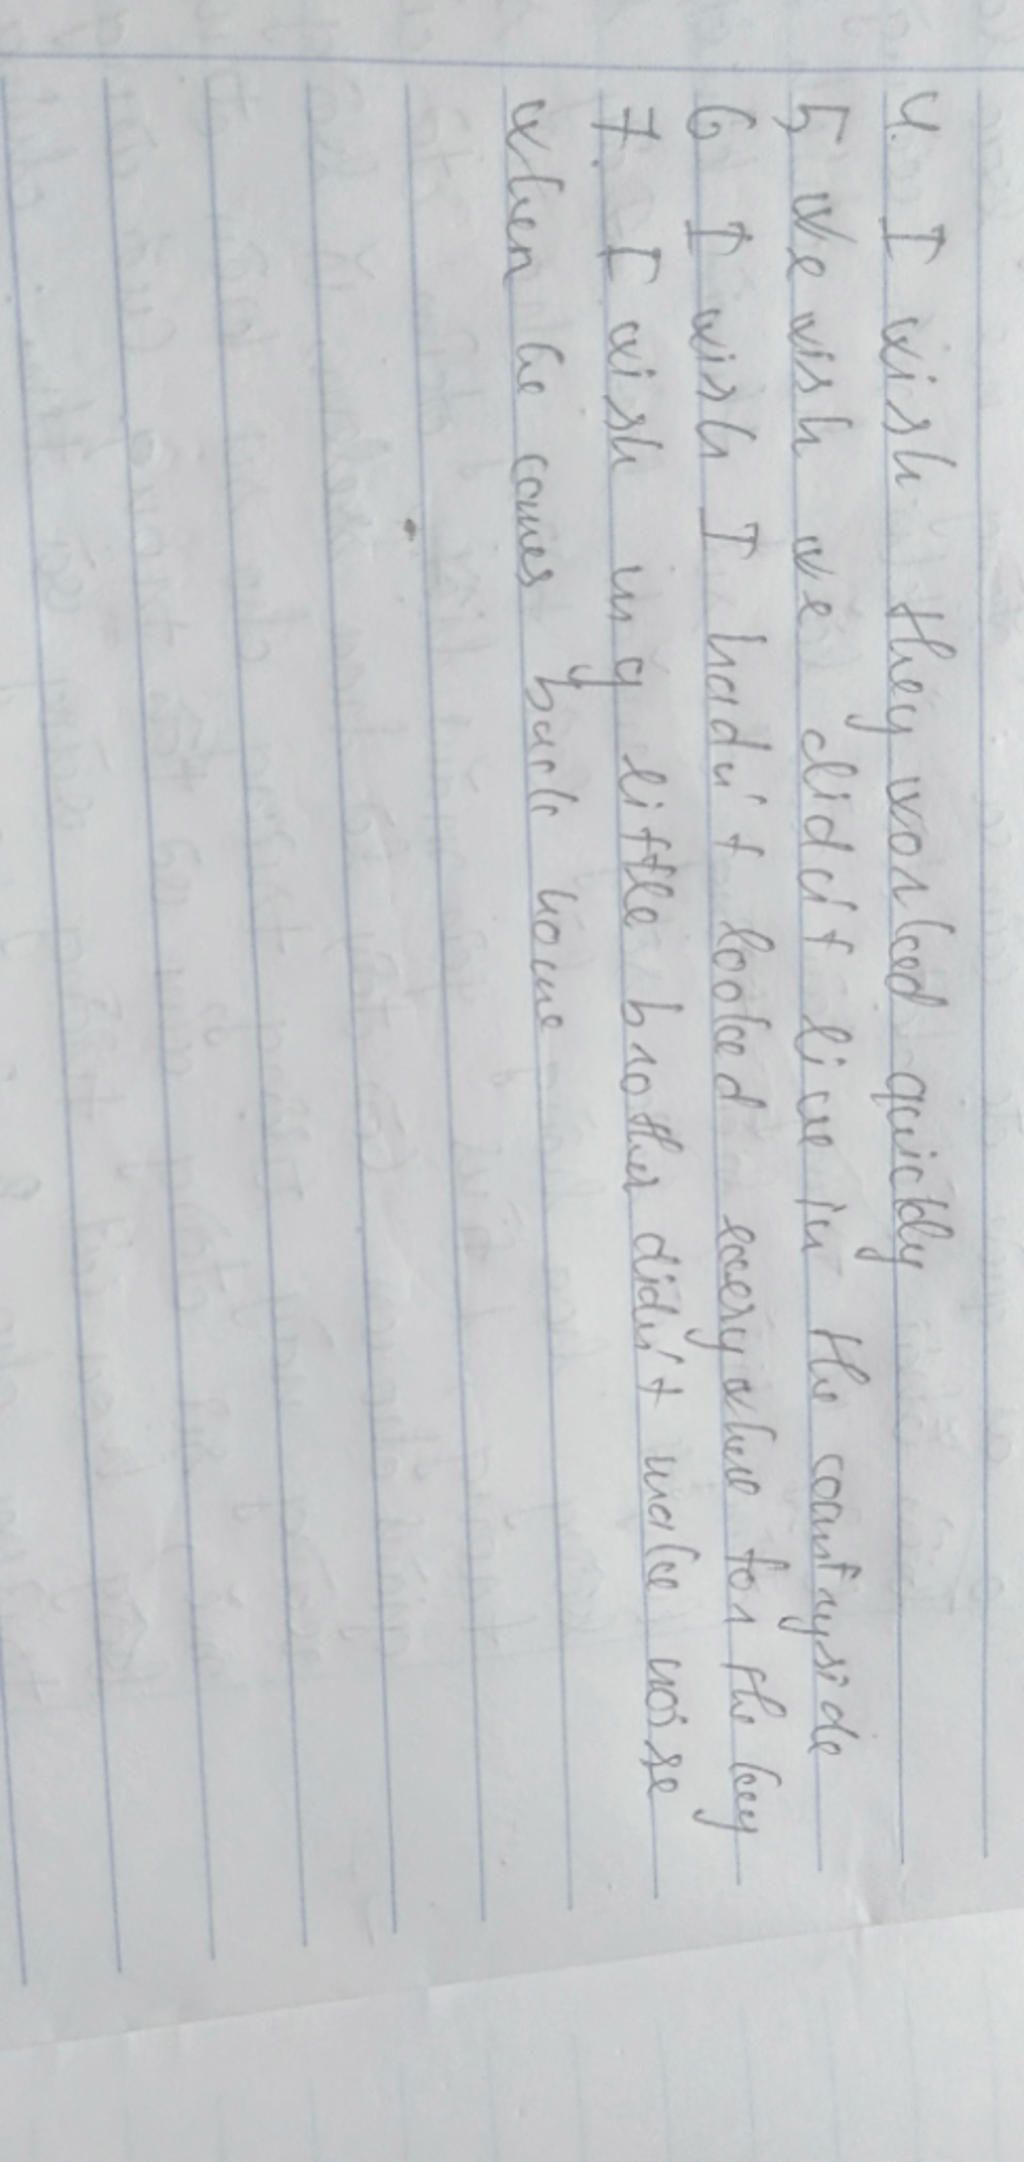 4. I wish they worked quickly
5, We wish we didn't live in the countryside
6 I wish I hadn't looked everywhere for the key
7. I wish my little brother didn't make noise
when he comes back home